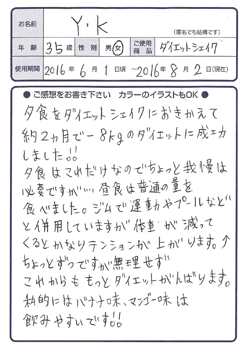 お名前 Y・K (匿名でも結構です)
年齢 35歳 性別 男・女 ご使用商品 ダイエットシェイク
使用期間 2016年6月1日頃〜2016年8月2日(現在)
●ご感想をお書き下さい カラーのイラストもOK●
夕食をダイエットシェイクにおきかえて
約2ヵ月で-8kgのダイエットに成功
しました!!
夕食はこれだけなのでちょっと我慢は
必要ですが… 昼食は普通の量を
食べました。ジムで運動やプールなど
と併用していますが体重が減って
くるとかなりテンションが上がります。↑
ちょっとずつですが無理せず
これからももっとダイエットがんばります。
私的にはバナナ味、マンゴー味は
飲みやすいです!!